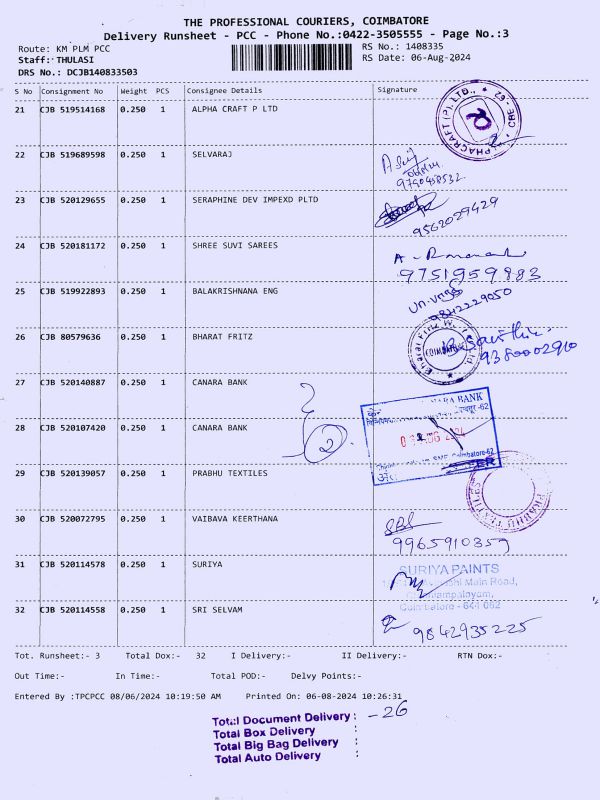 THE PROFESSIONAL COURIERS, COIMBATORE
Delivery Runsheet - PCC - Phone No.:0422-3505555 - Page No.:3
Route: KM PLM PCC
RS No.: 1408335
Staff: THULASI
RS Date: 06-Aug-2024
DRS No.: DCJB140833503
S No Consignment No Weight PCS Consignee Details Signature
21 CJB 519514168 0.250 1 ALPHA CRAFT P LTD
22 CJB 519689598 0.250 1 SELVARAJ
9790458532
23 CJB 520129655 0.250 1 SERAPHINE DEV IMPEXD PLTD
9562029429
24 CJB 520181172 0.250 1 SHREE SUVI SAREES
9751959883
25 CJB 519922893 0.250 1 BALAKRISHNANA ENG
9842229050
26 CJB 80579636 0.250 1 BHARAT FRITZ
COIMBATORE
9380002910
27 CJB 520140887 0.250 1 CANARA BANK
CANARA BANK
28 CJB 520107420 0.250 1 CANARA BANK
2
29 CJB 520139057 0.250 1 PRABHU TEXTILES
30 CJB 520072795 0.250 1 VAIBAVA KEERTHANA
9965910359
31 CJB 520114578 0.250 1 SURIYA
SURIYA PAINTS
Main Road,
Coimbatore - 641 062
32 CJB 520114558 0.250 1 SRI SELVAM
9842935225
Tot. Runsheet:- 3 Total Dox:- 32 I Delivery:- II Delivery:- RTN Dox:-
Out Time:- In Time:- Total POD:- Delvy Points:-
Entered By :TPCPCC 08/06/2024 10:19:50 AM Printed On: 06-08-2024 10:26:31
Total Document Delivery : -26
Total Box Delivery :
Total Big Bag Delivery :
Total Auto Delivery :